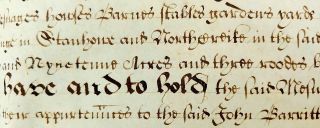 houses Barnes stables gardens yards
in Stanhowe and Northcreike in the said
and Nynetene Acres and three roodes
have and to hold the said Mesu
their appurten'nces to the said John Barritt